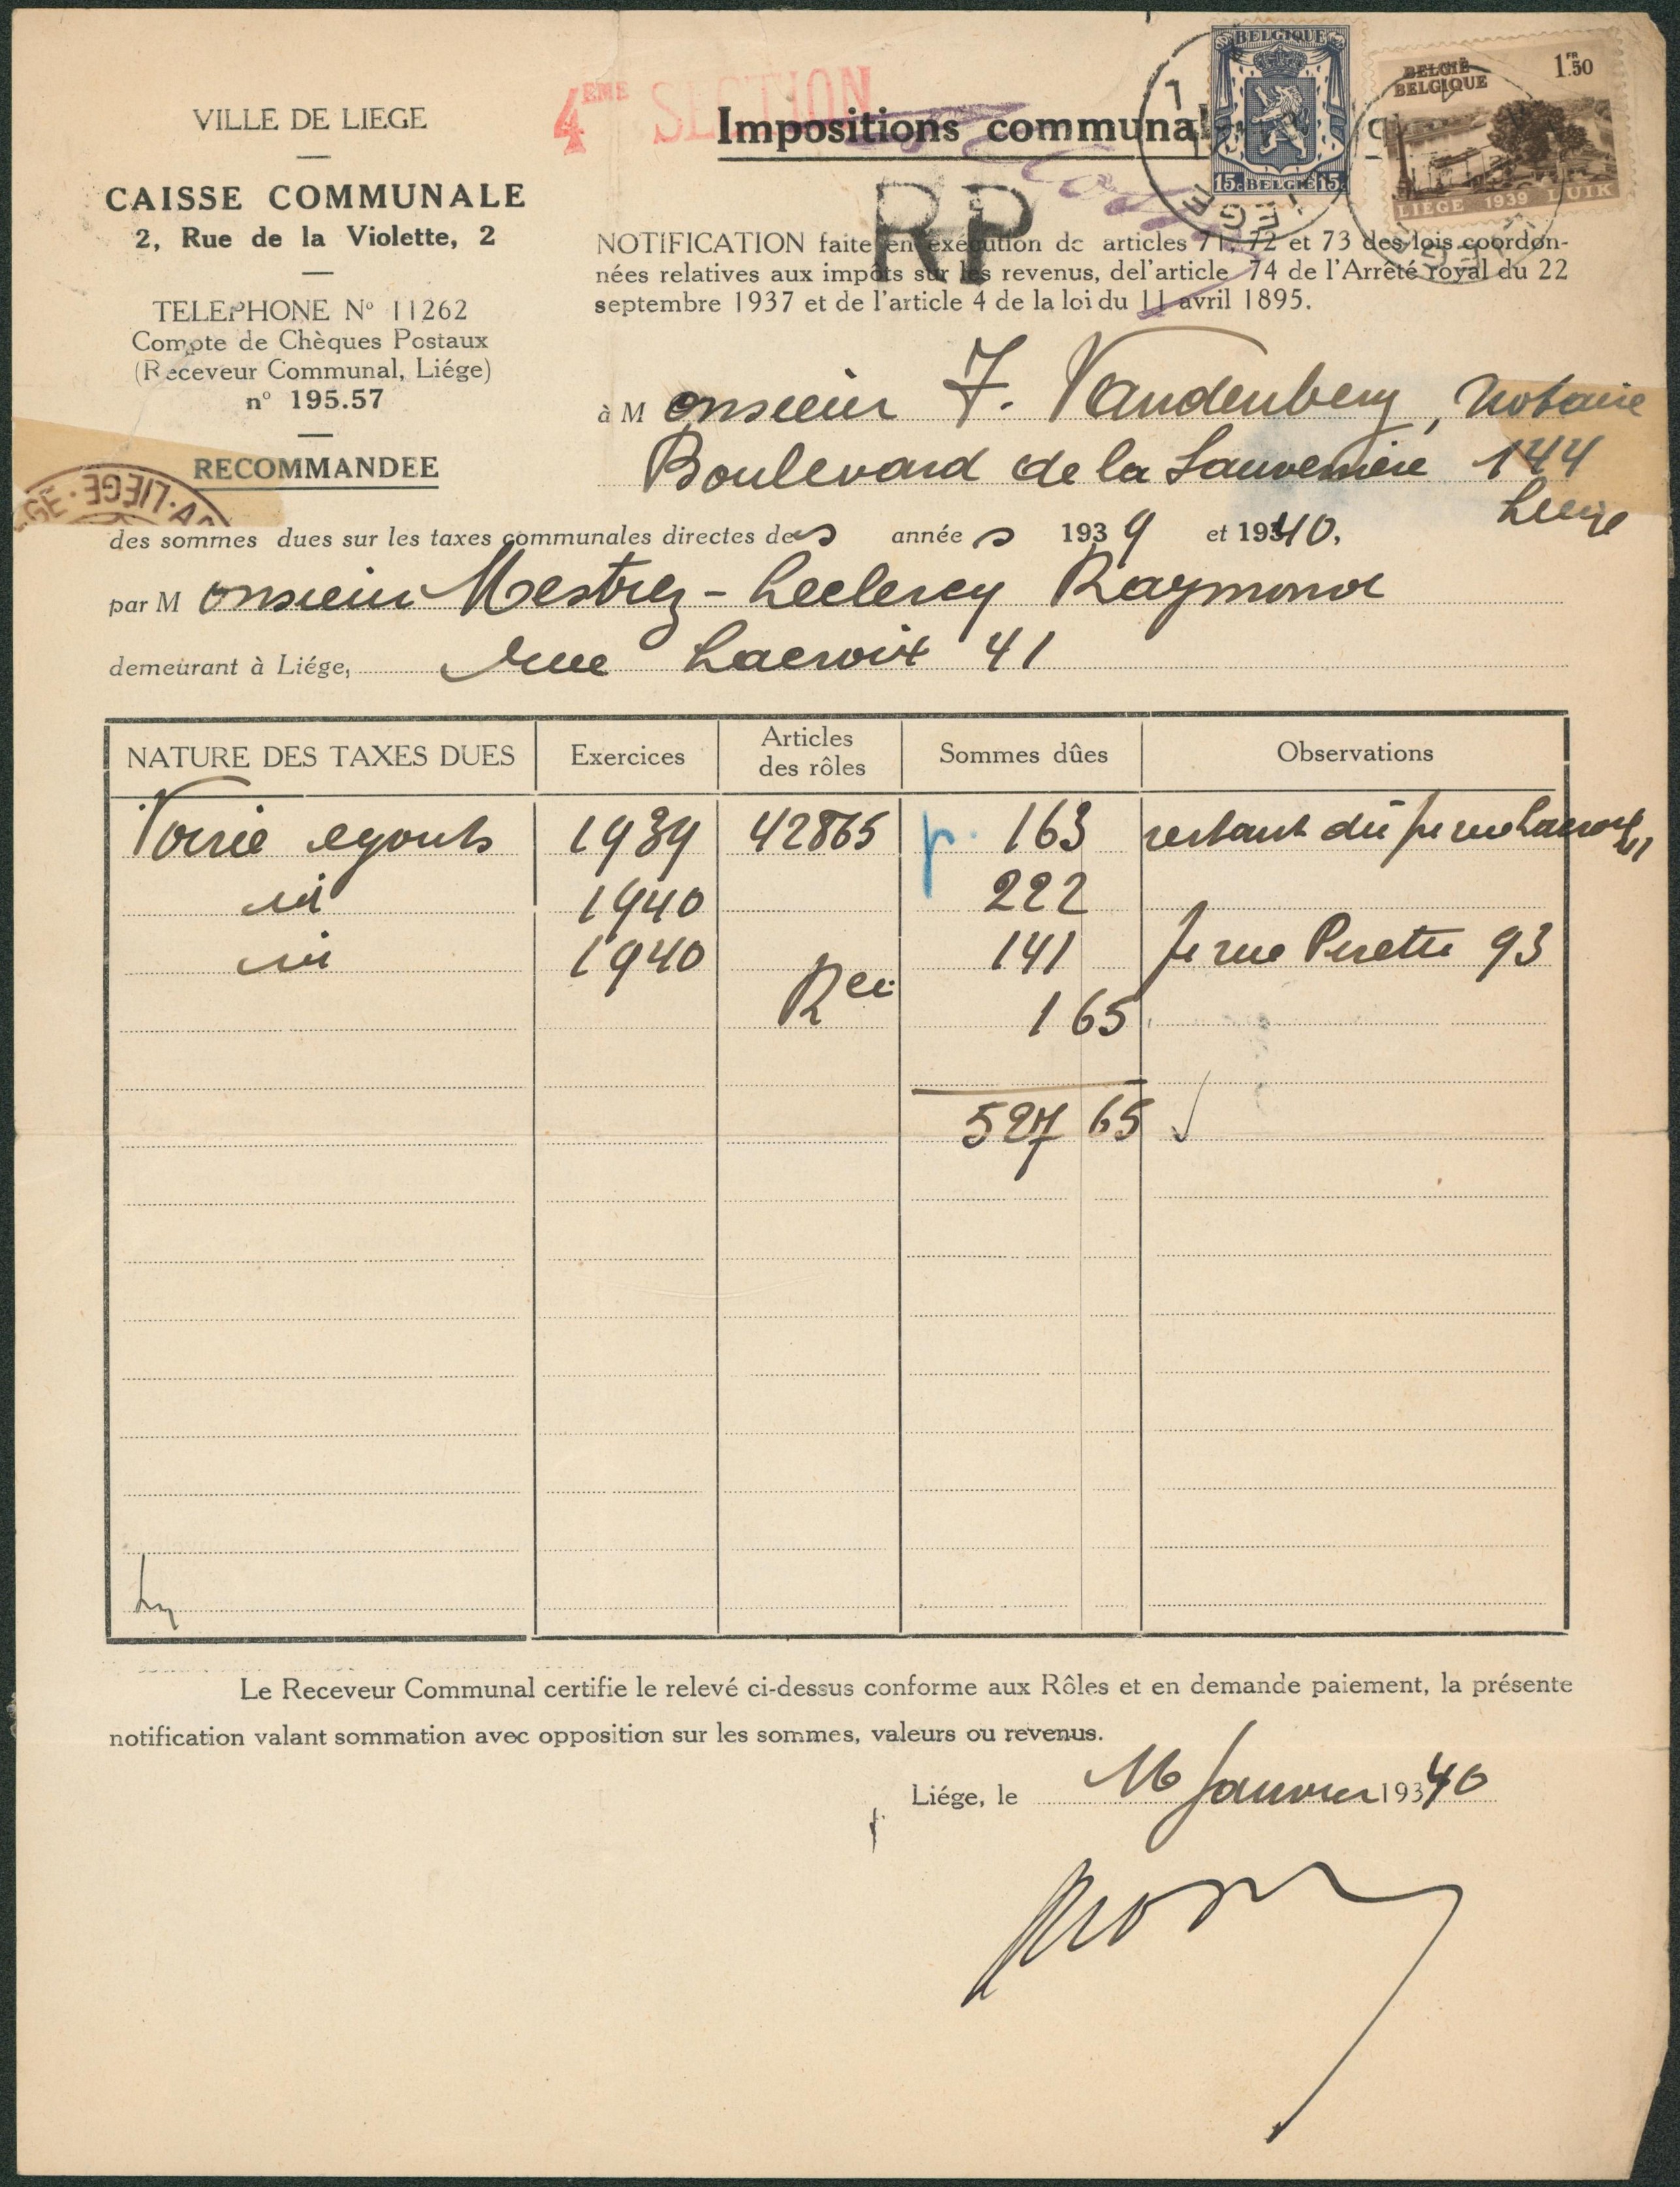 VILLE DE LIEGE
CAISSE COMMUNALE
2, Rue de la Violette, 2
TELEPHONE No 11262
Compte de Chèques Postaux
(Receveur Communal, Liége)
no 195.57
RECOMMANDEE
LIEGE
4EME SECTION
Impositions communal
BELGIQUE
15c BELGIE 15c
BELGIË
BELGIQUE
1FR50
LIÉGE 1939 LUIK
RP
NOTIFICATION faite en exécution de articles 71, 72 et 73 des lois coordon-
nées relatives aux impôts sur les revenus, del'article 74 de l'Arrêté royal du 22
septembre 1937 et de l'article 4 de la loi du 11 avril 1895.
à Monsieur F. Vandenberg, Notaire
Boulevard de la Sauvenière 144
Liége
des sommes dues sur les taxes communales directes des années 1939 et 1940,
par Monsieur Mestrez-Leclercq Raymond
demeurant à Liége, rue Lacroix 41
NATURE DES TAXES DUES Exercices Articles des rôles Sommes dûes Observations
Voirie egouts 1939 42865 p. 163 restant dû pr rue Lacroix 41
id 1940 222
id 1940 141 pr rue Perette 93
Rec 1 65
527 65
Le Receveur Communal certifie le relevé ci-dessus conforme aux Rôles et en demande paiement, la présente
notification valant sommation avec opposition sur les sommes, valeurs ou revenus.
Liége, le 16 Janvier 1940